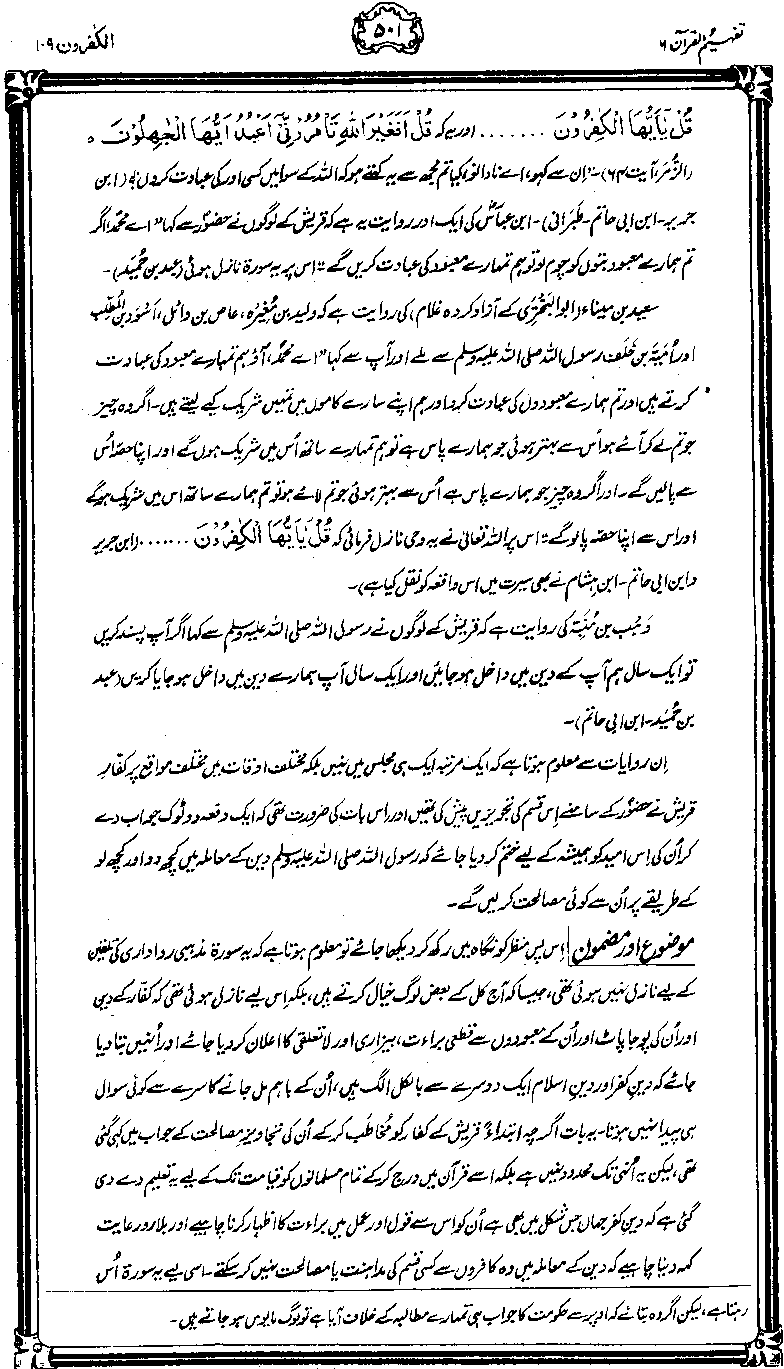 تفہیم القرآن ۶
۵۰۱
الکٰفرون ۱۰۹
قُلْ یٰاَیُّھَا الْکٰفِرُوْنَ ....... اور یہ کہ قُلْ اَفَغَیْرَ اللہِ تَأْمُرُوْنِّیْٓ اَعْبُدُ اَیُّھَا الْجٰھِلُوْنَ ہ
(الزُّمَر، آیت ۶۴)۔ "اِن سے کہو، اے نادانو، کیا تم مجھ سے یہ کہتے ہو کہ اللہ کے سوا میں کسی اور کی عبادت کروں؟" (ابن
جریر۔ ابن ابی حاتم۔ طبرانی)۔ ابن عباسؓ کی ایک اور روایت یہ ہے کہ قریش کے لوگوں نے حضورؐ سے کہا "اے محمدؐ، اگر
تم ہمارے معبود بتوں کو چوم لو تو ہم تمہارے معبود کی عبادت کریں گے۔" اِس پر یہ سورۃ نازل ہوئی (عبد بن حُمَید)۔
سعید بن مینا (ابوالبختری کے آزاد کردہ غلام) کی روایت ہے کہ ولید بن مُغیرہ، عاص بن وائل، اَسْوَد بن المُطَّلِب
اور اُمَیَّہ بن خَلَف رسول اللہ صلی اللہ علیہ وسلم سے ملے اور آپ سے کہا "اے محمدؐ، آؤ ہم تمہارے معبود کی عبادت
کرتے ہیں اور تم ہمارے معبودوں کی عبادت کرو اور ہم اپنے سارے کاموں میں تمہیں شریک کیے لیتے ہیں۔ اگر وہ چیز
جو تم لے کر آئے ہو اُس سے بہتر ہوئی جو ہمارے پاس ہے تو ہم تمہارے ساتھ اُس میں شریک ہوں گے اور اپنا حصہ اُس
سے پالیں گے۔ اور اگر وہ چیز جو ہمارے پاس ہے اُس سے بہتر ہوئی جو تم لائے ہو تو تم ہمارے ساتھ اس میں شریک ہوگے
اور اس سے اپنا حصہ پالوگے۔" اس پر اللہ تعالیٰ نے یہ وحی نازل فرمائی کہ قُلْ یٰاَیُّھَا الْکٰفِرُوْنَ ....... (ابن جریر
و ابن ابی حاتم۔ ابن ہشام نے بھی سیرت میں اس واقعہ کو نقل کیا ہے)۔
وَہب بن مُنَبِّہ کی روایت ہے کہ قریش کے لوگوں نے رسول اللہ صلی اللہ علیہ وسلم سے کہا اگر آپ پسند کریں
تو ایک سال ہم آپ کے دین میں داخل ہوجائیں اور ایک سال آپ ہمارے دین میں داخل ہو جایا کریں (عبد
بن حُمَید۔ ابن ابی حاتم)۔
اِن روایات سے معلوم ہوتا ہے کہ ایک مرتبہ ایک ہی مجلس میں نہیں بلکہ مختلف اوقات میں مختلف مواقع پر کفارِ
قریش نے حضورؐ کے سامنے اِس قسم کی تجویزیں پیش کی تھیں اور اس بات کی ضرورت تھی کہ ایک دفعہ دو ٹوک جواب دے
کر اُن کی اِس امید کو ہمیشہ کے لیے ختم کر دیا جائے کہ رسول اللہ صلی اللہ علیہ وسلم دین کے معاملہ میں کچھ دو اور کچھ لو
کے طریقے پر اُن سے کوئی مصالحت کرلیں گے۔
موضوع اور مضمون | اِس پس منظر کو نگاہ میں رکھ کر دیکھا جائے تو معلوم ہوتا ہے کہ یہ سورۃ مذہبی رواداری کی تلقین
کے لیے نازل نہیں ہوئی تھی، جیسا کہ آج کل کے بعض لوگ خیال کرتے ہیں، بلکہ اِس لیے نازل ہوئی تھی کہ کفار کے دین
اور اُن کی پوجا پاٹ اور اُن کے معبودوں سے قطعی براءت، بیزاری اور لا تعلقی کا اعلان کر دیا جائے اور اُنہیں بتا دیا
جائے کہ دینِ کفر اور دینِ اسلام ایک دوسرے سے بالکل الگ ہیں، اُن کے باہم مل جانے کا سرے سے کوئی سوال
ہی پیدا نہیں ہوتا۔ یہ بات اگرچہ ابتداءً قریش کے کفار کو مُخاطَب کر کے اُن کی تجاویزِ مصالحت کے جواب میں کہی گئی
تھی، لیکن یہ اُنہی تک محدود نہیں ہے بلکہ اسے قرآن میں درج کر کے تمام مسلمانوں کو قیامت تک کے لیے یہ تعلیم دے دی
گئی ہے کہ دینِ کفر جہاں جس شکل میں بھی ہے اُن کو اس سے قول اور عمل میں براءت کا اظہار کرنا چاہیے اور بلا رو رعایت
کہہ دینا چاہیے کہ دین کے معاملہ میں وہ کافروں سے کسی قسم کی مداہنت یا مصالحت نہیں کر سکتے۔ اسی لیے یہ سورۃ اُس
رہتا ہے، لیکن اگر وہ بتائے کہ اوپر سے حکومت کا جواب ہی تمہارے مطالبہ کے خلاف آیا ہے تو لوگ مایوس ہو جاتے ہیں۔